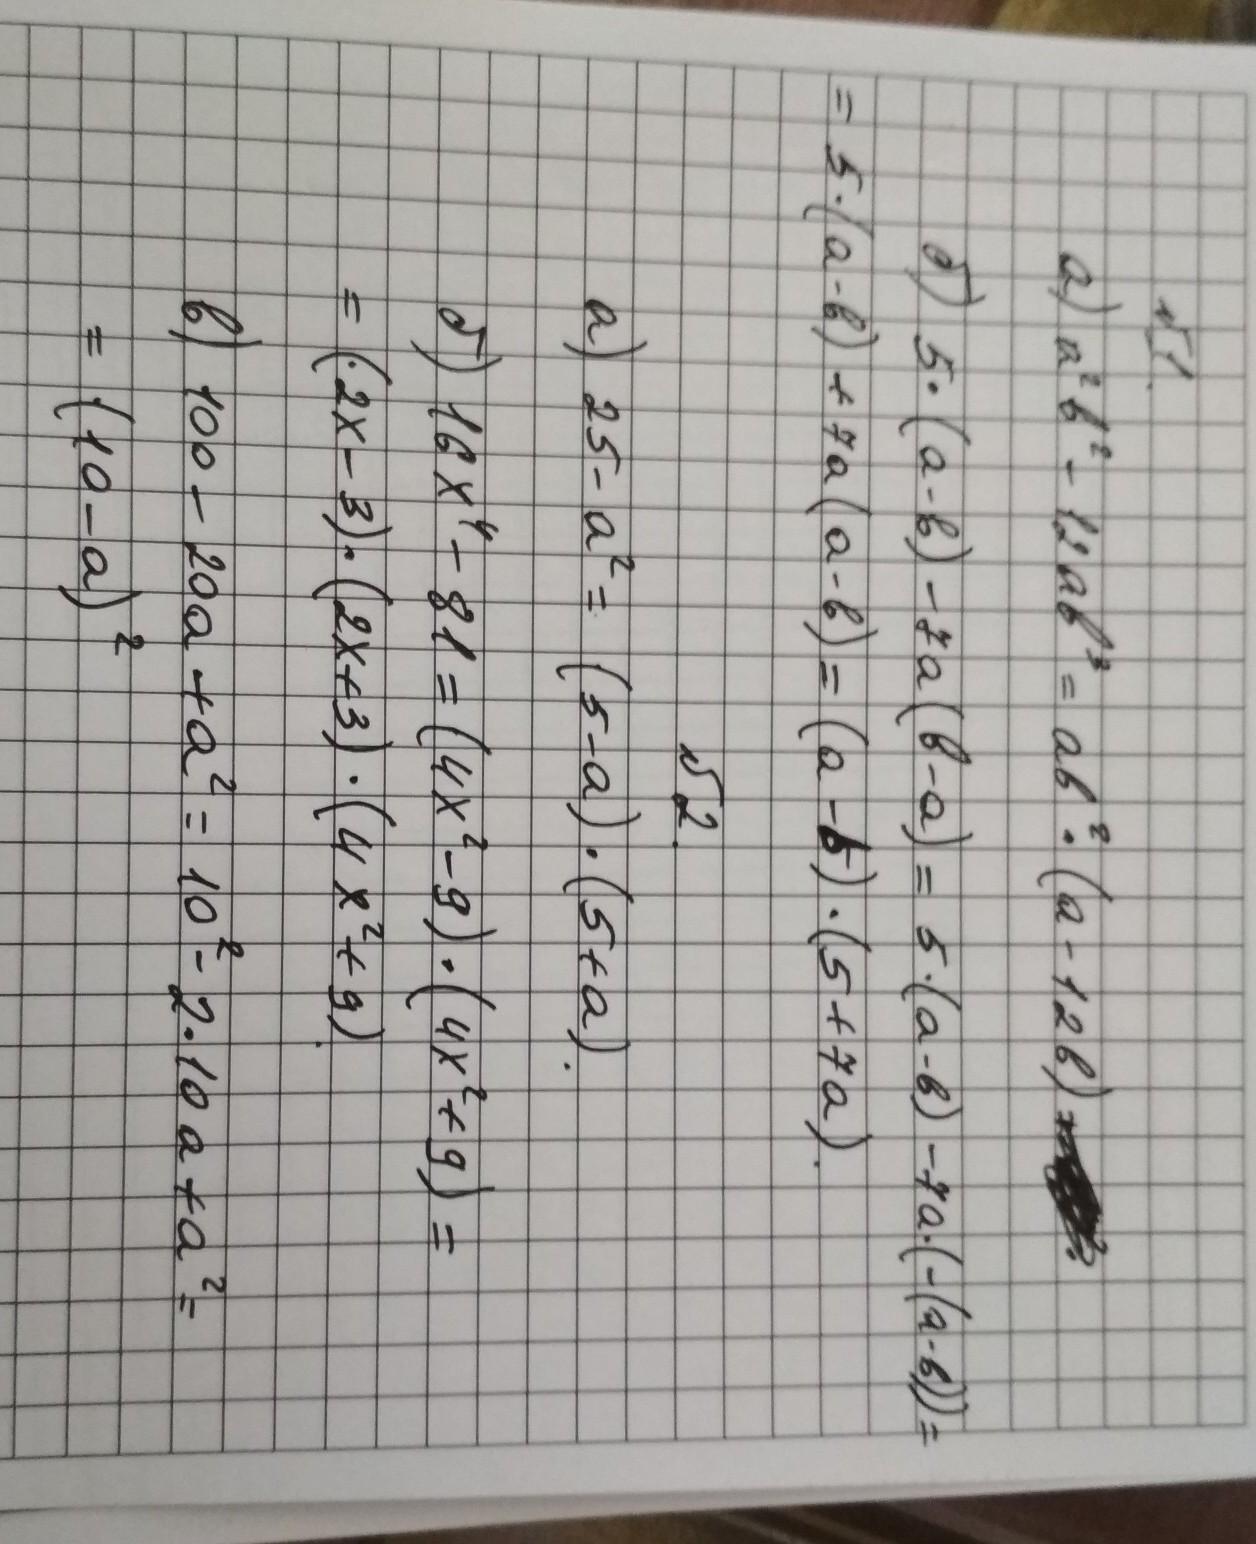 №1.
а) a²b² - 12ab³ = ab² · (a - 12b)
б) 5 · (a - b) - 7a (b - a) = 5 · (a - b) - 7a · (-(a - b)) =
= 5 · (a - b) + 7a (a - b) = (a - b) · (5 + 7a).
№2.
а) 25 - a² = (5 - a) · (5 + a).
б) 16x⁴ - 81 = (4x² - 9) · (4x² + 9) =
= (2x - 3) · (2x + 3) · (4x² + 9).
в) 100 - 20a + a² = 10² - 2 · 10a + a² =
= (10 - a)²